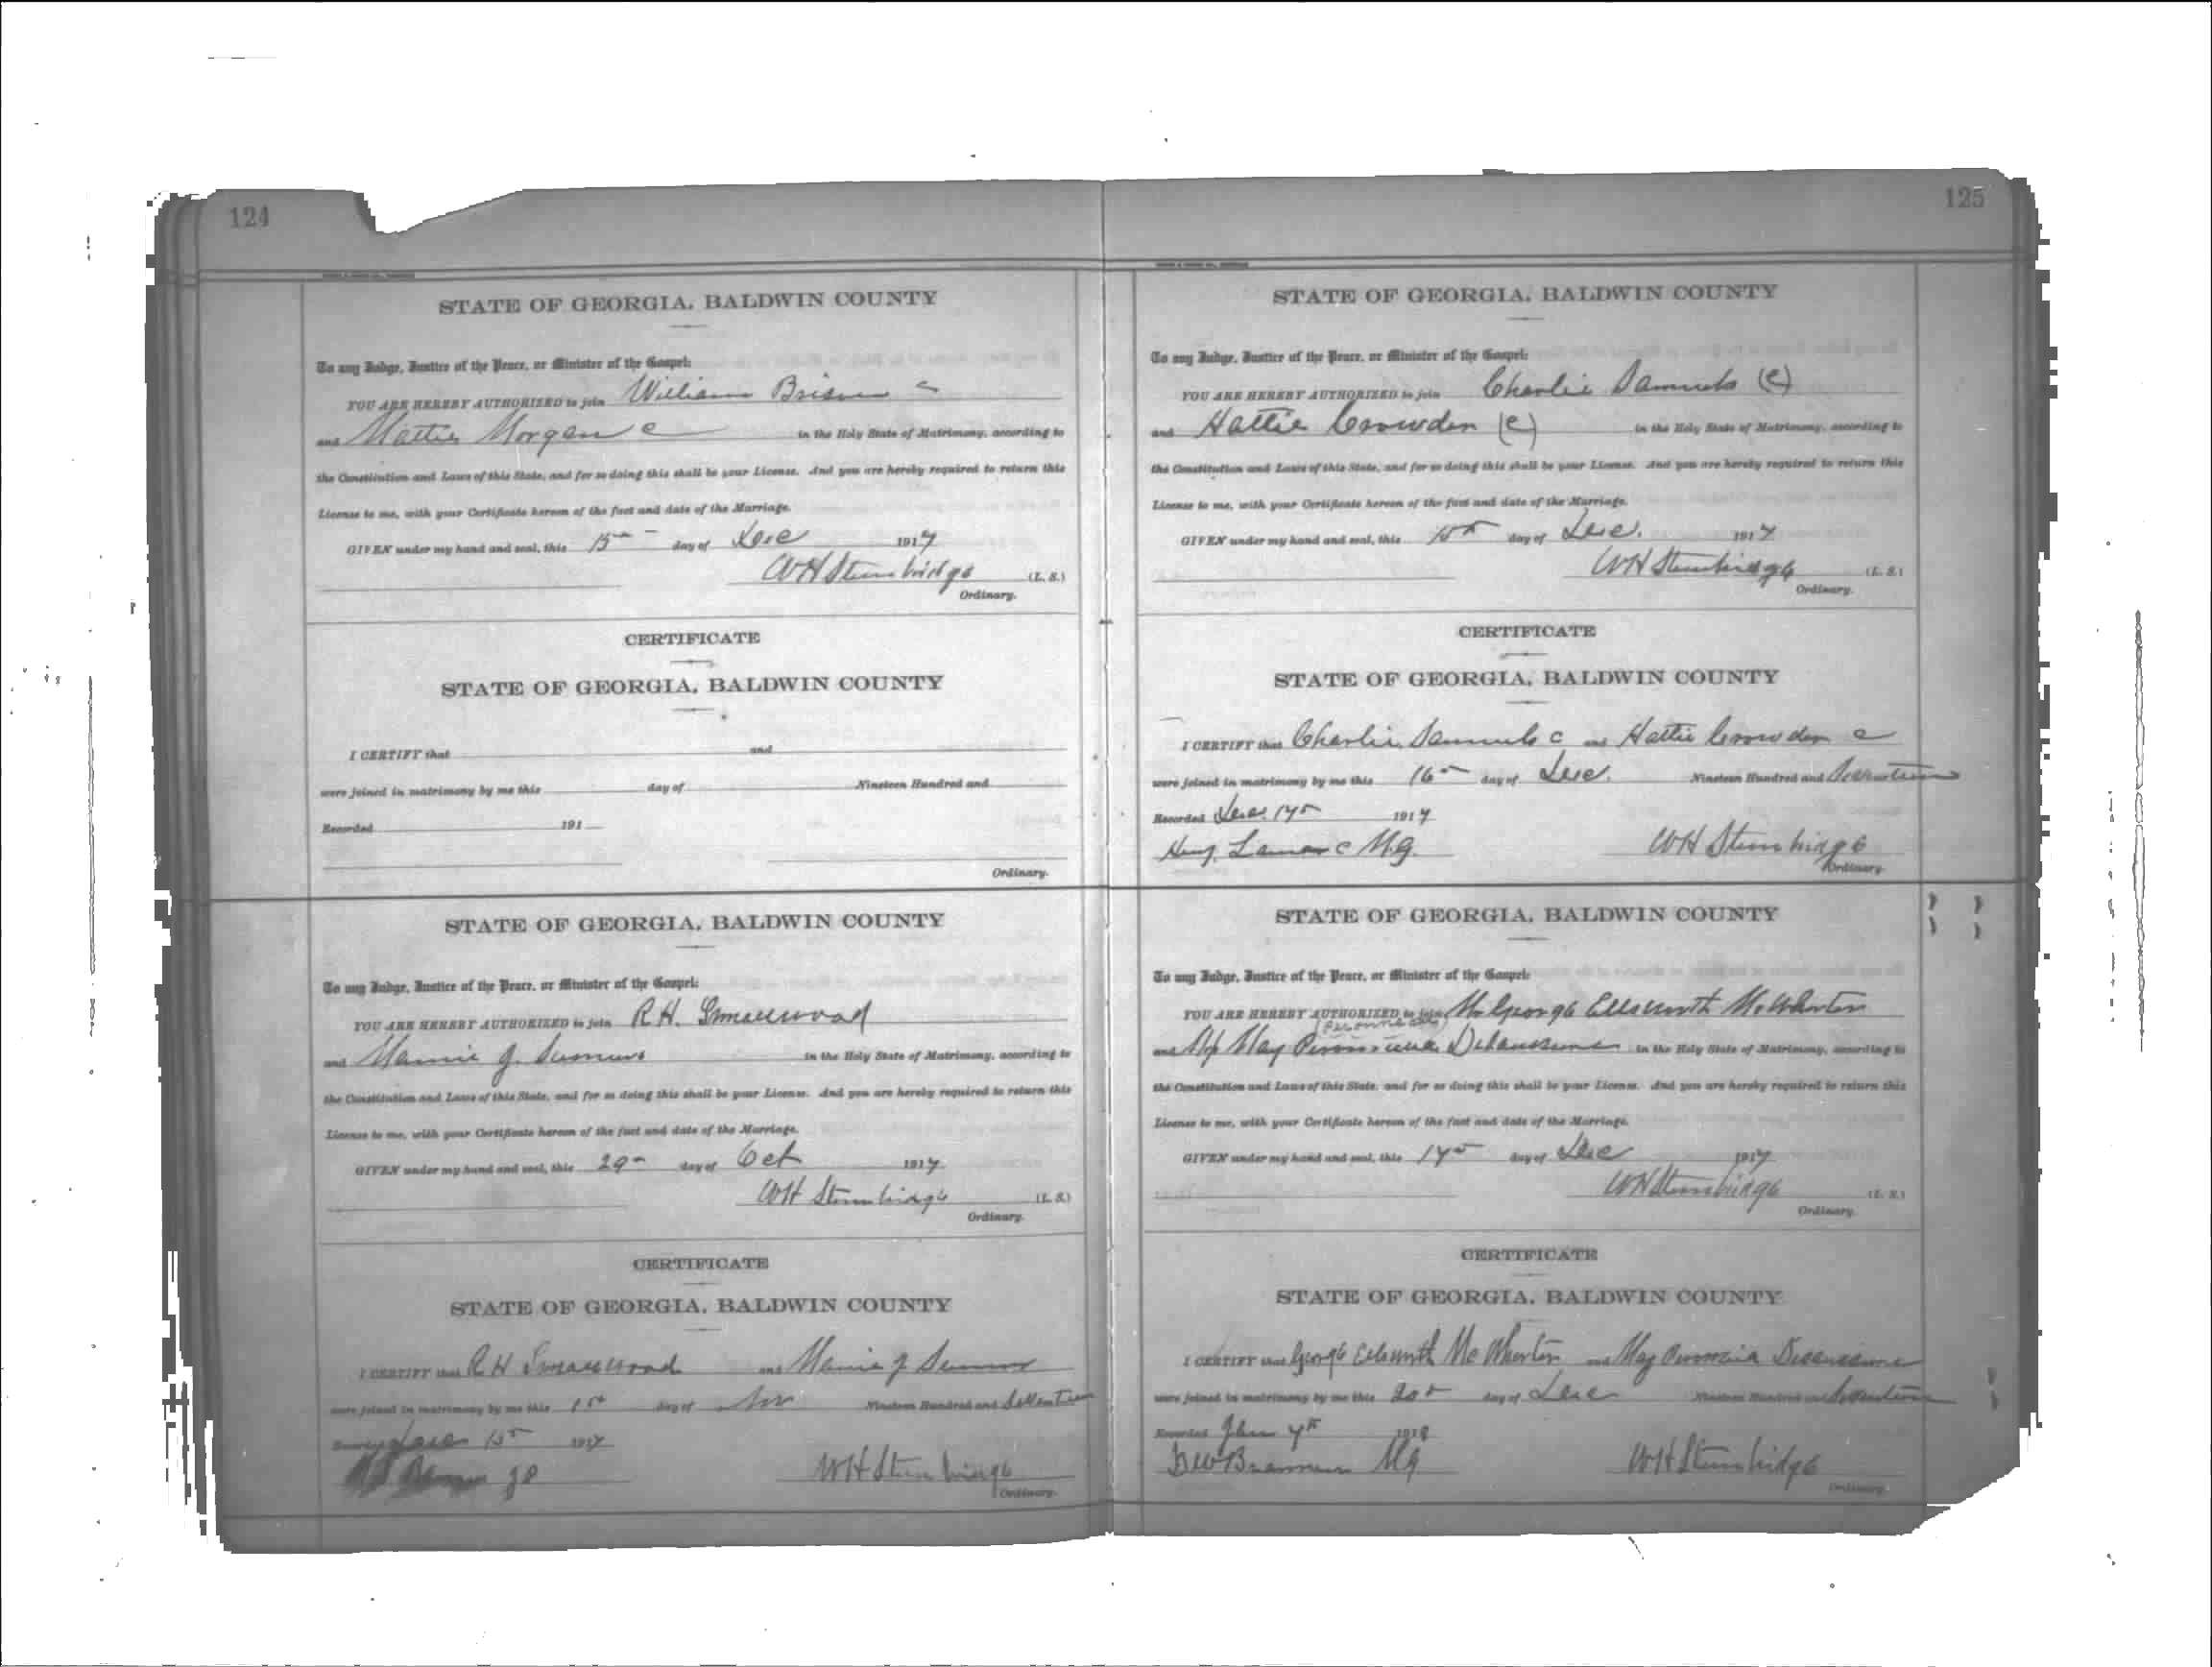 124
STATE OF GEORGIA, BALDWIN COUNTY
To any Judge, Justice of the Peace, or Minister of the Gospel:
YOU ARE HEREBY AUTHORIZED to join William c
and Mattie Morgan c in the Holy State of Matrimony, according to
the Constitution and Laws of this State, and for so doing this shall be your License. And you are hereby required to return this
License to me, with your Certificate hereon of the fact and date of the Marriage.
GIVEN under my hand and seal, this 15 day of Dec 1917
WH Stembridge (L. S.)
Ordinary.
CERTIFICATE
STATE OF GEORGIA, BALDWIN COUNTY
I CERTIFY that and
were joined in matrimony by me this day of Nineteen Hundred and
Recorded 191
Ordinary.
STATE OF GEORGIA, BALDWIN COUNTY
To any Judge, Justice of the Peace, or Minister of the Gospel:
YOU ARE HEREBY AUTHORIZED to join R.H. Smallwood
and Mamie J. in the Holy State of Matrimony, according to
the Constitution and Laws of this State, and for so doing this shall be your License. And you are hereby required to return this
License to me, with your Certificate hereon of the fact and date of the Marriage.
GIVEN under my hand and seal, this 29 day of Oct 1917
WH Stembridge (L. S.)
Ordinary.
CERTIFICATE
STATE OF GEORGIA, BALDWIN COUNTY
I CERTIFY that R H Smallwood and Mamie J
were joined in matrimony by me this 1st day of Nov Nineteen Hundred and Seventeen
Recorded Dec 15 1917
JP WH Stembridge
Ordinary.
125
STATE OF GEORGIA, BALDWIN COUNTY
To any Judge, Justice of the Peace, or Minister of the Gospel:
YOU ARE HEREBY AUTHORIZED to join Charlie Samuels (C)
and Hattie Crowder (C) in the Holy State of Matrimony, according to
the Constitution and Laws of this State, and for so doing this shall be your License. And you are hereby required to return this
License to me, with your Certificate hereon of the fact and date of the Marriage.
GIVEN under my hand and seal, this 15th day of Dec. 1917
WH Stembridge (L. S.)
Ordinary.
CERTIFICATE
STATE OF GEORGIA, BALDWIN COUNTY
I CERTIFY that Charlie Samuels c and Hattie Crowder c
were joined in matrimony by me this 16 day of Dec. Nineteen Hundred and Seventeen
Recorded Dec. 17 1917
c M.G. WH Stembridge
Ordinary.
STATE OF GEORGIA, BALDWIN COUNTY
To any Judge, Justice of the Peace, or Minister of the Gospel:
YOU ARE HEREBY AUTHORIZED to join Mr George Ellsworth McWhorter
and May in the Holy State of Matrimony, according to
the Constitution and Laws of this State, and for so doing this shall be your License. And you are hereby required to return this
License to me, with your Certificate hereon of the fact and date of the Marriage.
GIVEN under my hand and seal, this 17 day of Dec 1917
WH Stembridge (L. S.)
Ordinary.
CERTIFICATE
STATE OF GEORGIA, BALDWIN COUNTY
I CERTIFY that George Ellsworth McWhorter and May
were joined in matrimony by me this 20 day of Dec Nineteen Hundred and Seventeen
Recorded Jan 7th 1918
MG WH Stembridge
Ordinary.